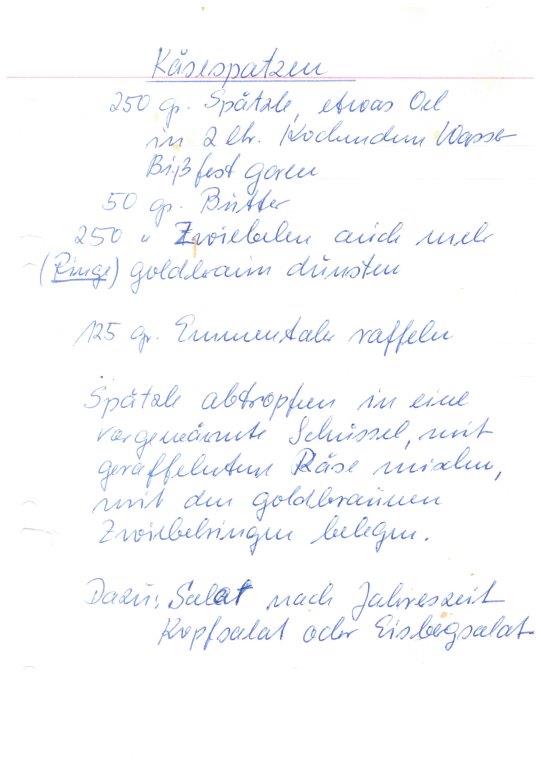 Käsespatzen
250 gr. Spätzle, etwas Oel
in 2 Ltr. Kochendem Wasser
Bißfest garen
50 gr. Butter
250 " Zwiebeln auch mehr
(Ringe) goldbraun dünsten
125 gr. Emmentaler raffeln
Spätzle abtropfen in eine
vorgewärmte Schüssel, mit
geraffeltem Käse mischen,
mit den goldbraunen
Zwiebelringen belegen.
Dazu: Salat nach Jahreszeit
Kopfsalat oder Eisbergsalat